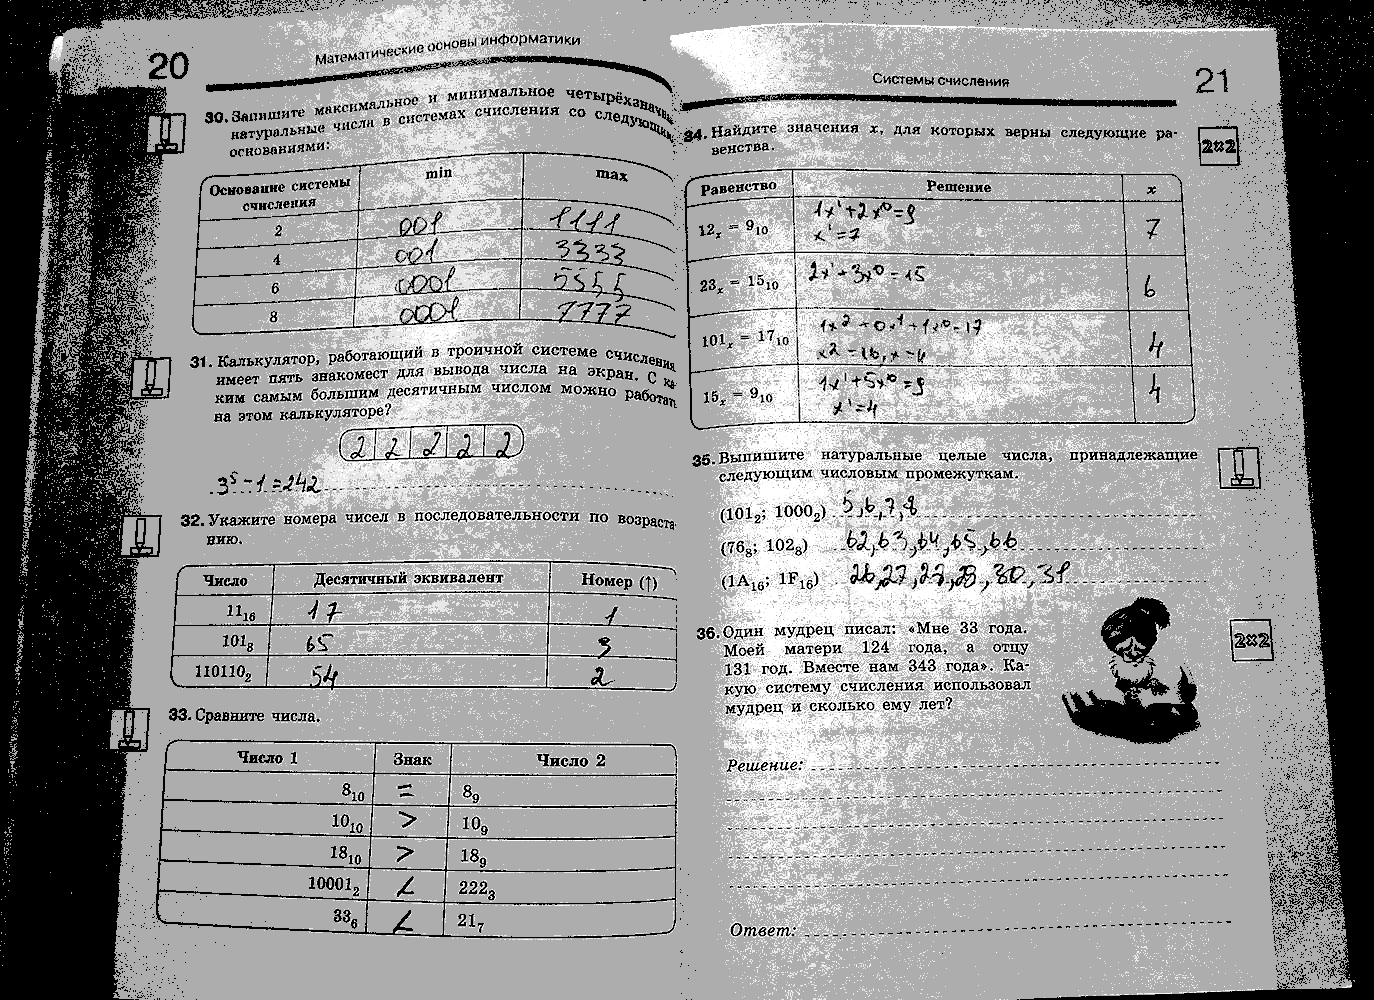 20
Математические основы информатики
30. Запишите максимальное и минимальное четырёхзначн
натуральные числа в системах счисления со следующим
основаниями:
Основание системы счисления min max
2 001 1111
4 001 3333
6 0001 5555
8 0001 7777
31. Калькулятор, работающий в троичной системе счисления
имеет пять знакомест для вывода числа на экран. С ка-
ким самым большим десятичным числом можно работать
на этом калькуляторе?
2 2 2 2 2
3⁵-1=242
32. Укажите номера чисел в последовательности по возраста-
нию.
Число Десятичный эквивалент Номер (↑)
11₁₆ 17 1
101₈ 65 3
110110₂ 54 2
33. Сравните числа.
Число 1 Знак Число 2
8₁₀ = 8₉
10₁₀ > 10₉
18₁₀ > 18₉
10001₂ < 222₃
33₆ < 21₇
Системы счисления
21
34. Найдите значения x, для которых верны следующие ра-
венства.
Равенство Решение x
12ₓ = 9₁₀ 1x¹+2x⁰=9
x¹=7 7
23ₓ = 15₁₀ 2x¹+3x⁰=15 6
101ₓ = 17₁₀ 1x²+0x¹+1x⁰=17
x²=16, x=4 4
15ₓ = 9₁₀ 1x¹+5x⁰=9
x¹=4 4
35. Выпишите натуральные целые числа, принадлежащие
следующим числовым промежуткам.
(101₂; 1000₂) 5,6,7,8
(76₈; 102₈) 62,63,64,65,66
(1A₁₆; 1F₁₆) 26,27,28,29,30,31
36. Один мудрец писал: «Мне 33 года.
Моей матери 124 года, а отцу
131 год. Вместе нам 343 года». Ка-
кую систему счисления использовал
мудрец и сколько ему лет?
Решение:
Ответ: